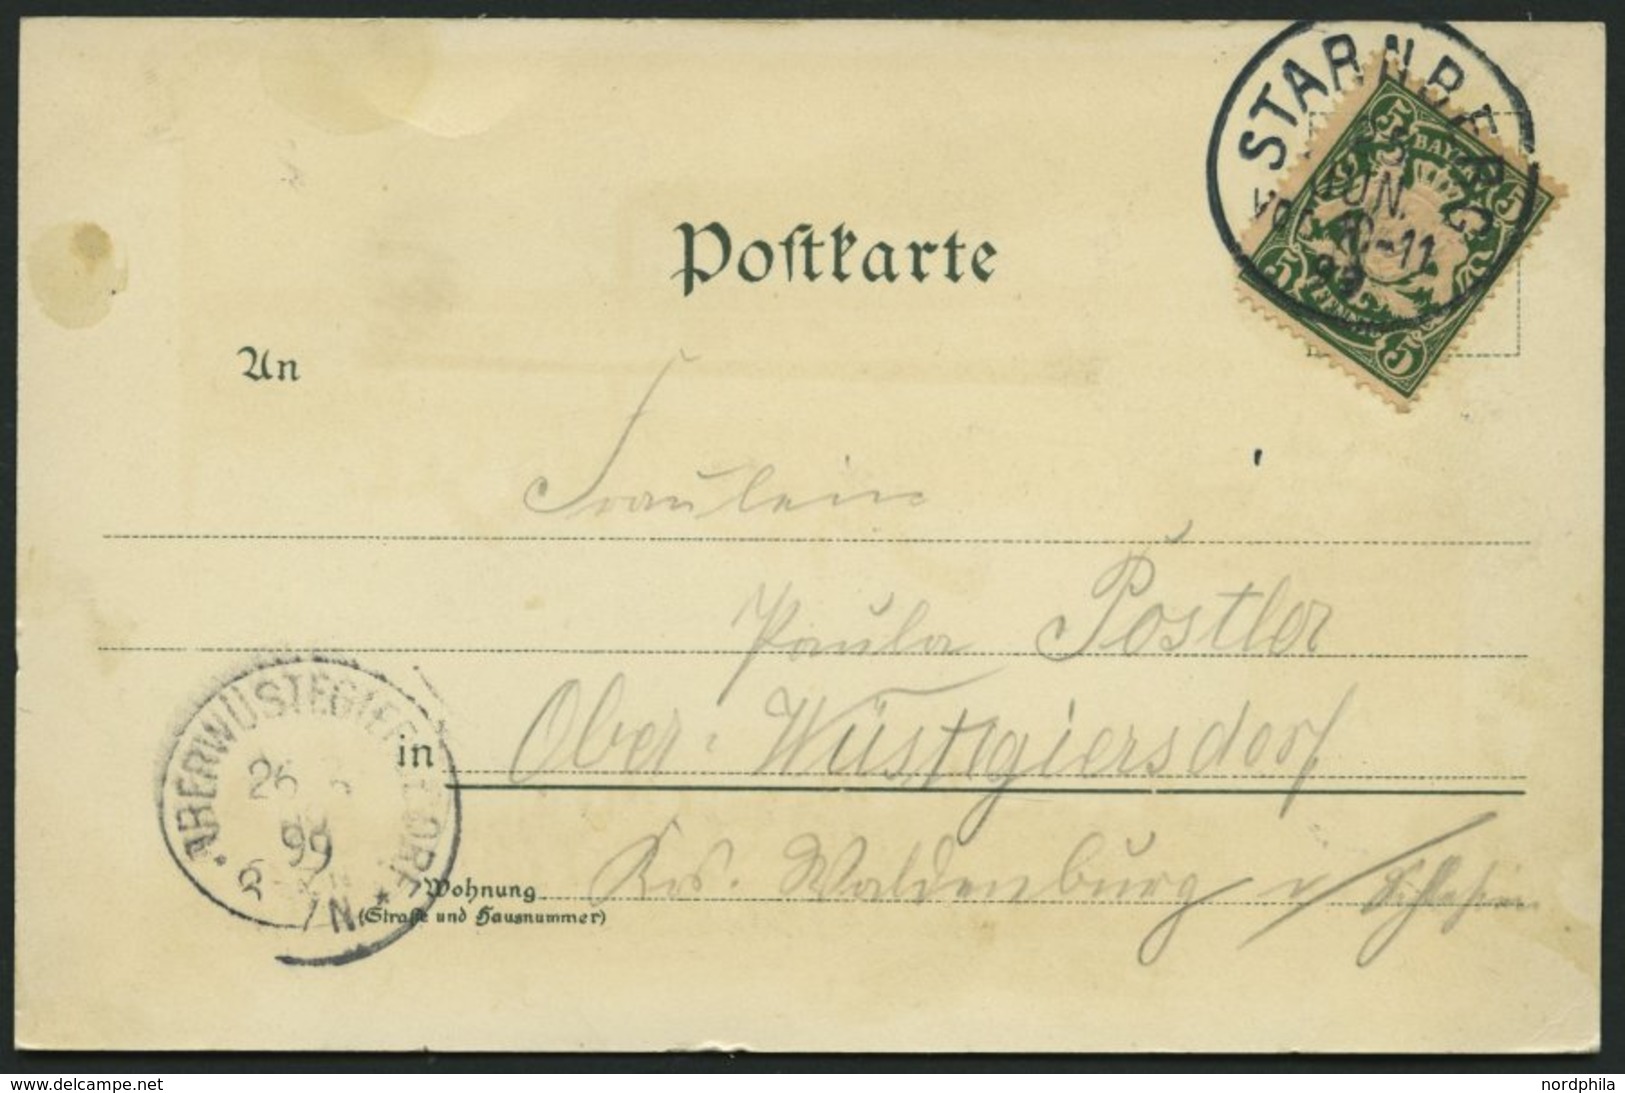 STARNBERG
JUN.
VOR. 10-11
99
BAYERN
5 5 5 5
Postkarte
An
Fräulein
Paula Postler
in Ober-Wüstegiersdorf
Wohnung Krs. Waldenburg i/Schlesien
(Straße und Hausnummer)
OBERWÜSTEGIERSDORF
26 6
99
N
www.delcampe.net
nordphila